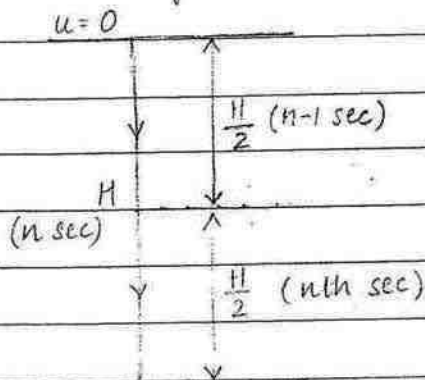 u = 0
H/2 (n-1 sec)
H
(n sec)
H/2 (nth sec)